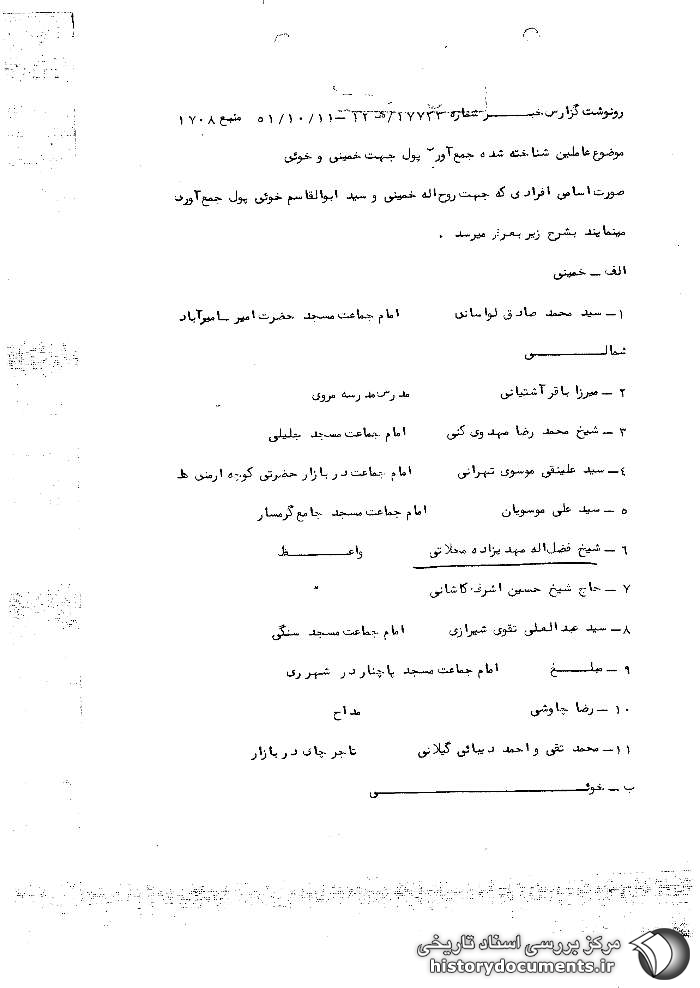 رونوشت گزارش خبـــــر شماره ۲۷۷۳۳/ هـ ۱۲ – ۵۱/۱۰/۱۱ منبع ۱۷۰۸
موضوع عاملین شناخته شده جمع‌آوری پول جهت خمینی و خوئی
صورت اسامی افرادی که جهت روح‌اله خمینی و سید ابوالقاسم خوئی پول جمع‌آوری
مینمایند بشرح زیر بعرض میرسد .
الف – خمینی
۱– سید محمد صادق لواسانی امام جماعت مسجد حضرت امیر – امیرآباد
شمالـــــــــی
۲ – میرزا باقر آشتیانی مدرس مدرسه مروی
۳ – شیخ محمد رضا مهدوی کنی امام جماعت مسجد جلیلی
۴– سید علینقی موسوی تهرانی امام جماعت در بازار حضرتی کوچه ارمنی ها
۵ – سید علی موسویان امام جماعت مسجد جامع گرمسار
۶ – شیخ فضل‌اله مهدیزاده محلاتی واعـــــــظ
۷ – حاج شیخ حسین اشرف کاشانی "
۸– سید عبدالعلی تقوی شیرازی امام جماعت مسجد سنگی
۹ – مبلــــغ امام جماعت مسجد پاچنار در شهر ری
۱۰ – رضا چاوشی مداح
۱۱– محمد تقی و احمد دیبائی گیلانی تاجر چای در بازار
ب – خوئـــــــــــــــــــــی
مرکز بررسی اسناد تاریخی
historydocuments.ir